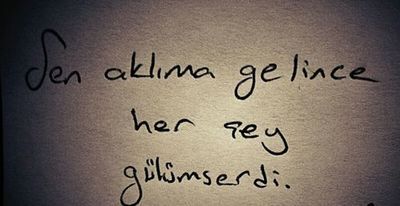 Sen aklıma gelince
her şey
gülümserdi.